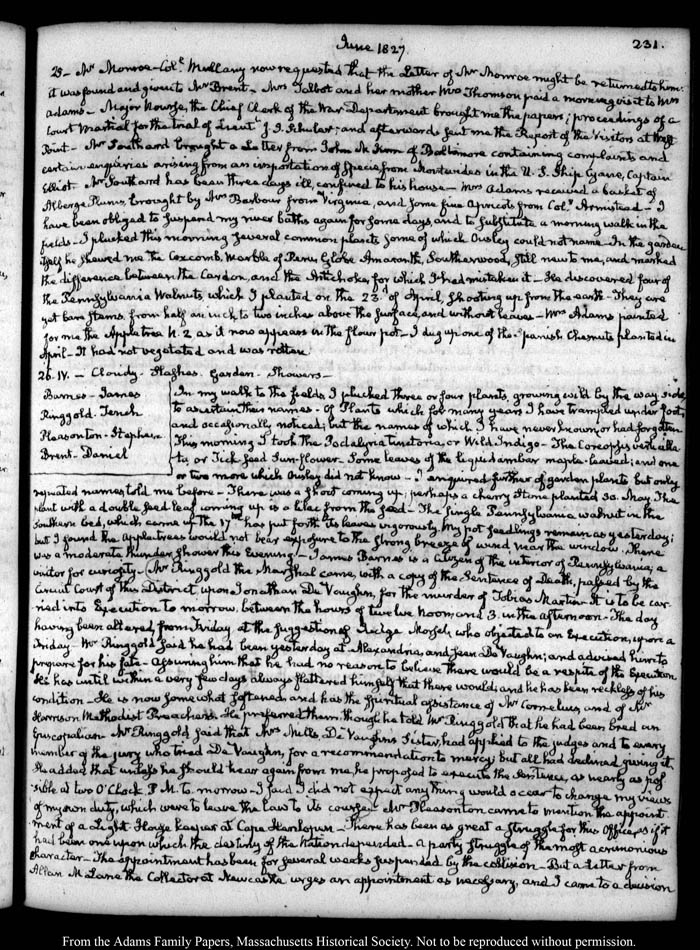 June 1827.
231.
25 - Mr. Monroe - Col. Mullany now requested that the Letter of Mr. Monroe might be returned to him.
it was found and given to Mr. Brent. Mrs. Talbot and her mother Mrs. Thomson paid a morning visit to Mrs.
Adams - Major Nourse, the Chief Clerk of the War Department brought me the papers; proceedings of a
Court Martial for the trial of Lieut. J. I. Schuler; and afterwards sent me the Report of the Visitors at West
Point - Mr. Southard brought a Letter from John of Baltimore containing complaints and
certain enquiries arising from an importation of Specie from in the U. S. Ship Cyane, Captain
Elliot. Mr. Southard has been three days ill, confined to his house - Mrs. Adams received a basket of
Alberge Plums, brought by Mrs. Barbour from Virginia, and some fine Apricots from Col. Armistead - I
have been obliged to suspend my river baths again for some days, and to substitute a morning walk in the
fields - I plucked this morning several common plants some of which Ousley could not name - In the garden
itself he shewed me the Coxcomb, Marble of Peru, Globe Amaranth, Southernwood, still new to me, and marked
the difference between the Cardon, and the Artichoke, for which I had mistaken it - He discovered four of
the Pennsylvania Walnuts which I planted on the 23d. of April, shooting up from the earth - They are
yet bare stems from half an inch, to two inches above the surface, and without leaves - Mrs. Adams painted
for me the Appletree N. 2 as it now appears in the flour pot. I dug up one of the Spanish Chesnuts planted in
April - It had not vegetated and was rotten
26. IV. - Cloudy - Garden - Showers -
Barnes - James
Ringgold - Tench
Pleasonton - Stephen
Brent - Daniel
In my walk to the fields, I plucked three or four plants, growing wild by the way side,
to ascertain their names - Of Plants which for many years I have trampled under foot,
and occasionally noticed, but the names of which I have never known, or had forgotten.
This morning I took the Podalyria tinctoria, or Wild Indigo - The Coreopsis verticilla-
ta, or Tick-seed Sun-flower. Some leaves of the liquidambar maple-leaved; and one
or two more which Ousley did not know - I enquired further of garden plants but only
repeated names, told me before - There was a shoot coming up; perhaps a cherry stone planted 30. May. The
plant with a double seed leaf coming up is a lilac from the seed - The single Pennsylvania walnut in the
Southern bed, which came up the 17th. has put forth its leaves vigorously. My pot seedlings remain as yesterday;
but I found the appletrees would not bear exposure to the strong breeze of wind near the window. There
was a moderate thunder shower this Evening - James Barnes is a Citizen of the interior of Pennsylvania; a
visitor for curiosity - Mr. Ringgold the Marshal came, with a copy of the Sentence of Death, passed by the
Circuit Court of this District, upon Jonathan De Vaughn, for the murder of Tobias Martin. It is to be car-
ried into Execution to morrow, between the hours of twelve Noon, and 3. in the afternoon - The day
having been altered from Friday at the suggestion of Judge Morsel, who objected to an Execution, upon a
Friday. Mr. Ringgold said he had been yesterday at Alexandria, and seen De Vaughn; and advised him to
prepare for his fate - assuring him that he had no reason to believe there would be a respite of the Execution
He has until within a very few days always flattered himself that there would; and he has been reckless of his
condition - He is now somewhat softened and has the spiritual assistance of Mr. Cornelius, and of Mr.
Harrison Methodist Preachers. He preferred them, though he told Mr. Ringgold that he had been bred an
Episcopalian - Mr. Ringgold said that Mrs. Mills, De Vaughn's Sister, had applied to the judges and to every
member of the jury who tried De Vaughn, for a recommendation to mercy; but all had declined giving it.
He added that unless he should hear again from me, he proposed to execute the Sentence, as nearly as pos-
sible at two O'Clock P. M. to-morrow - I said I did not expect anything would occur to change my views
of my own duty, which were to leave the law to its course - Mr. Pleasonton came to mention the appoint-
ment of a Light House keeper at Cape Henlopen - There has been as great a struggle for this Office, as if it
had been one upon which the destiny of the Nation depended - a party struggle of the most acrimonious
character - The appointment has been for several weeks suspended by the collision - But a Letter from
Allan McLane the Collector at Newcastle urges an appointment as necessary, and I came to a decision
From the Adams Family Papers, Massachusetts Historical Society. Not to be reproduced without permission.